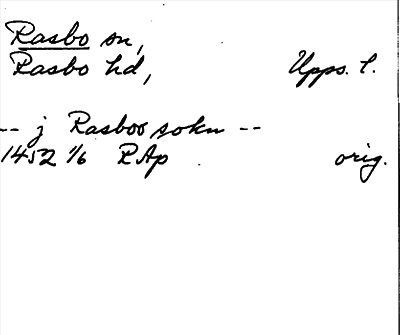 Rasbo sn,
Rasbo hd, Upps. l.
-- j Rasboo sokn --
1452 1/6 RAp orig.